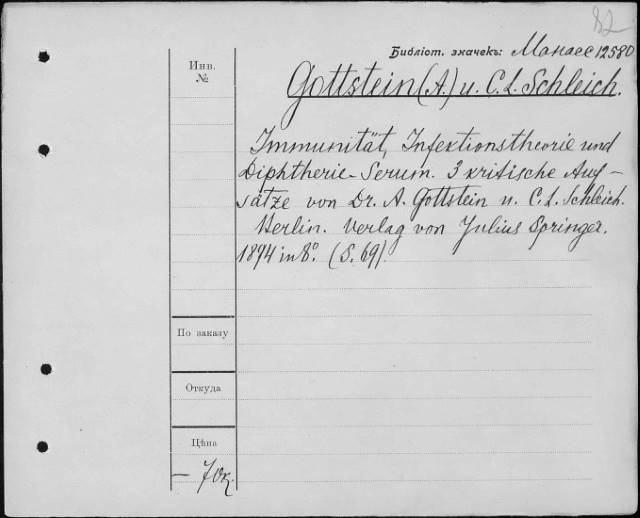 82
Библіот. значекъ: Манасс 12580
Инв.
№
Gottstein (A.) u. C. L. Schleich.
Immunität, Infektionstheorie und
Diphtherie-Serum. 3 kritische Auf-
sätze von Dr. A. Gottstein u. C. L. Schleich.
Berlin. Verlag von Julius Springer.
1894 in 8°. (S. 69).
По заказу
Откуда
Цѣна
— 70к.